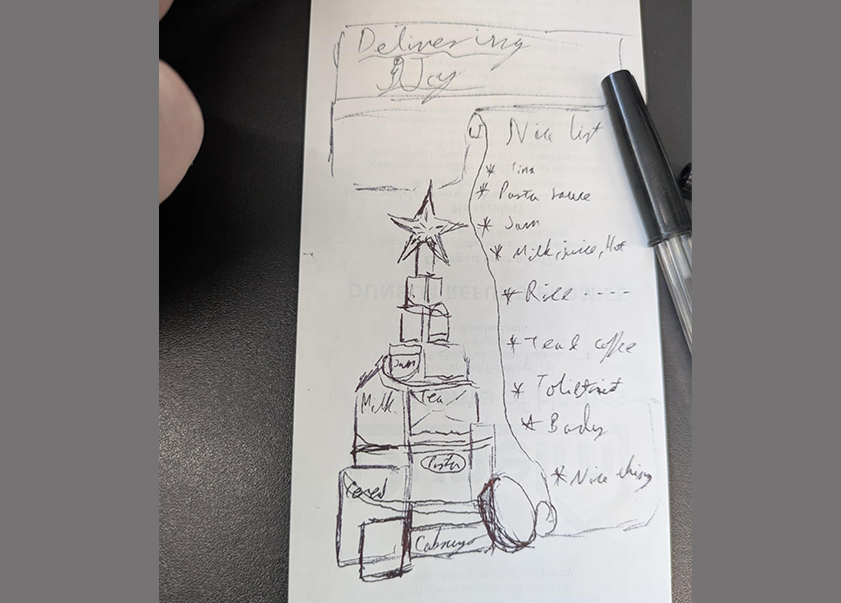 Delivering
Joy
Nice list
* Tins
* Pasta sauce
* Jam
* Milk, juice, Hot
* Rice ----
* Tea & coffee
* Toiletries
* Baby
* Nice things
Jam
Milk
Tea
Pasta
Cereal